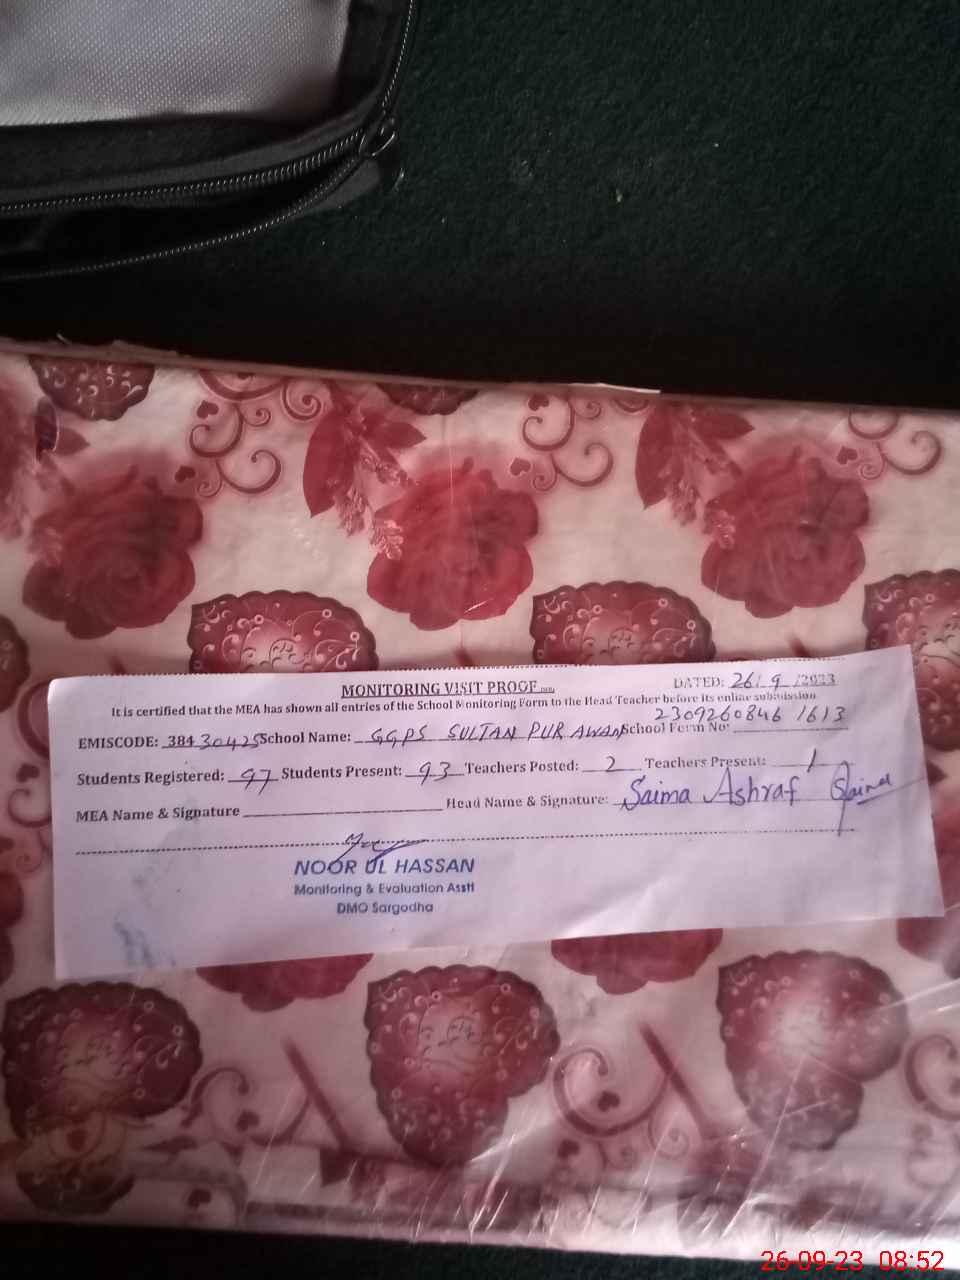 MONITORING VISIT PROOF
DATED: 26/ 9 /2023
It is certified that the MEA has shown all entries of the School Monitoring Form to the Head Teacher before its online submission
2309260846 1613
EMISCODE: 384 30425 School Name: GGPS SULTAN PUR AWAN School Form No:
Students Registered: 97 Students Present: 93 Teachers Posted: 2 Teachers Present: 1
MEA Name & Signature Head Name & Signature: Saima Ashraf Saima
NOOR UL HASSAN
Monitoring & Evaluation Asstt
DMO Sargodha
26-09-23 08:52